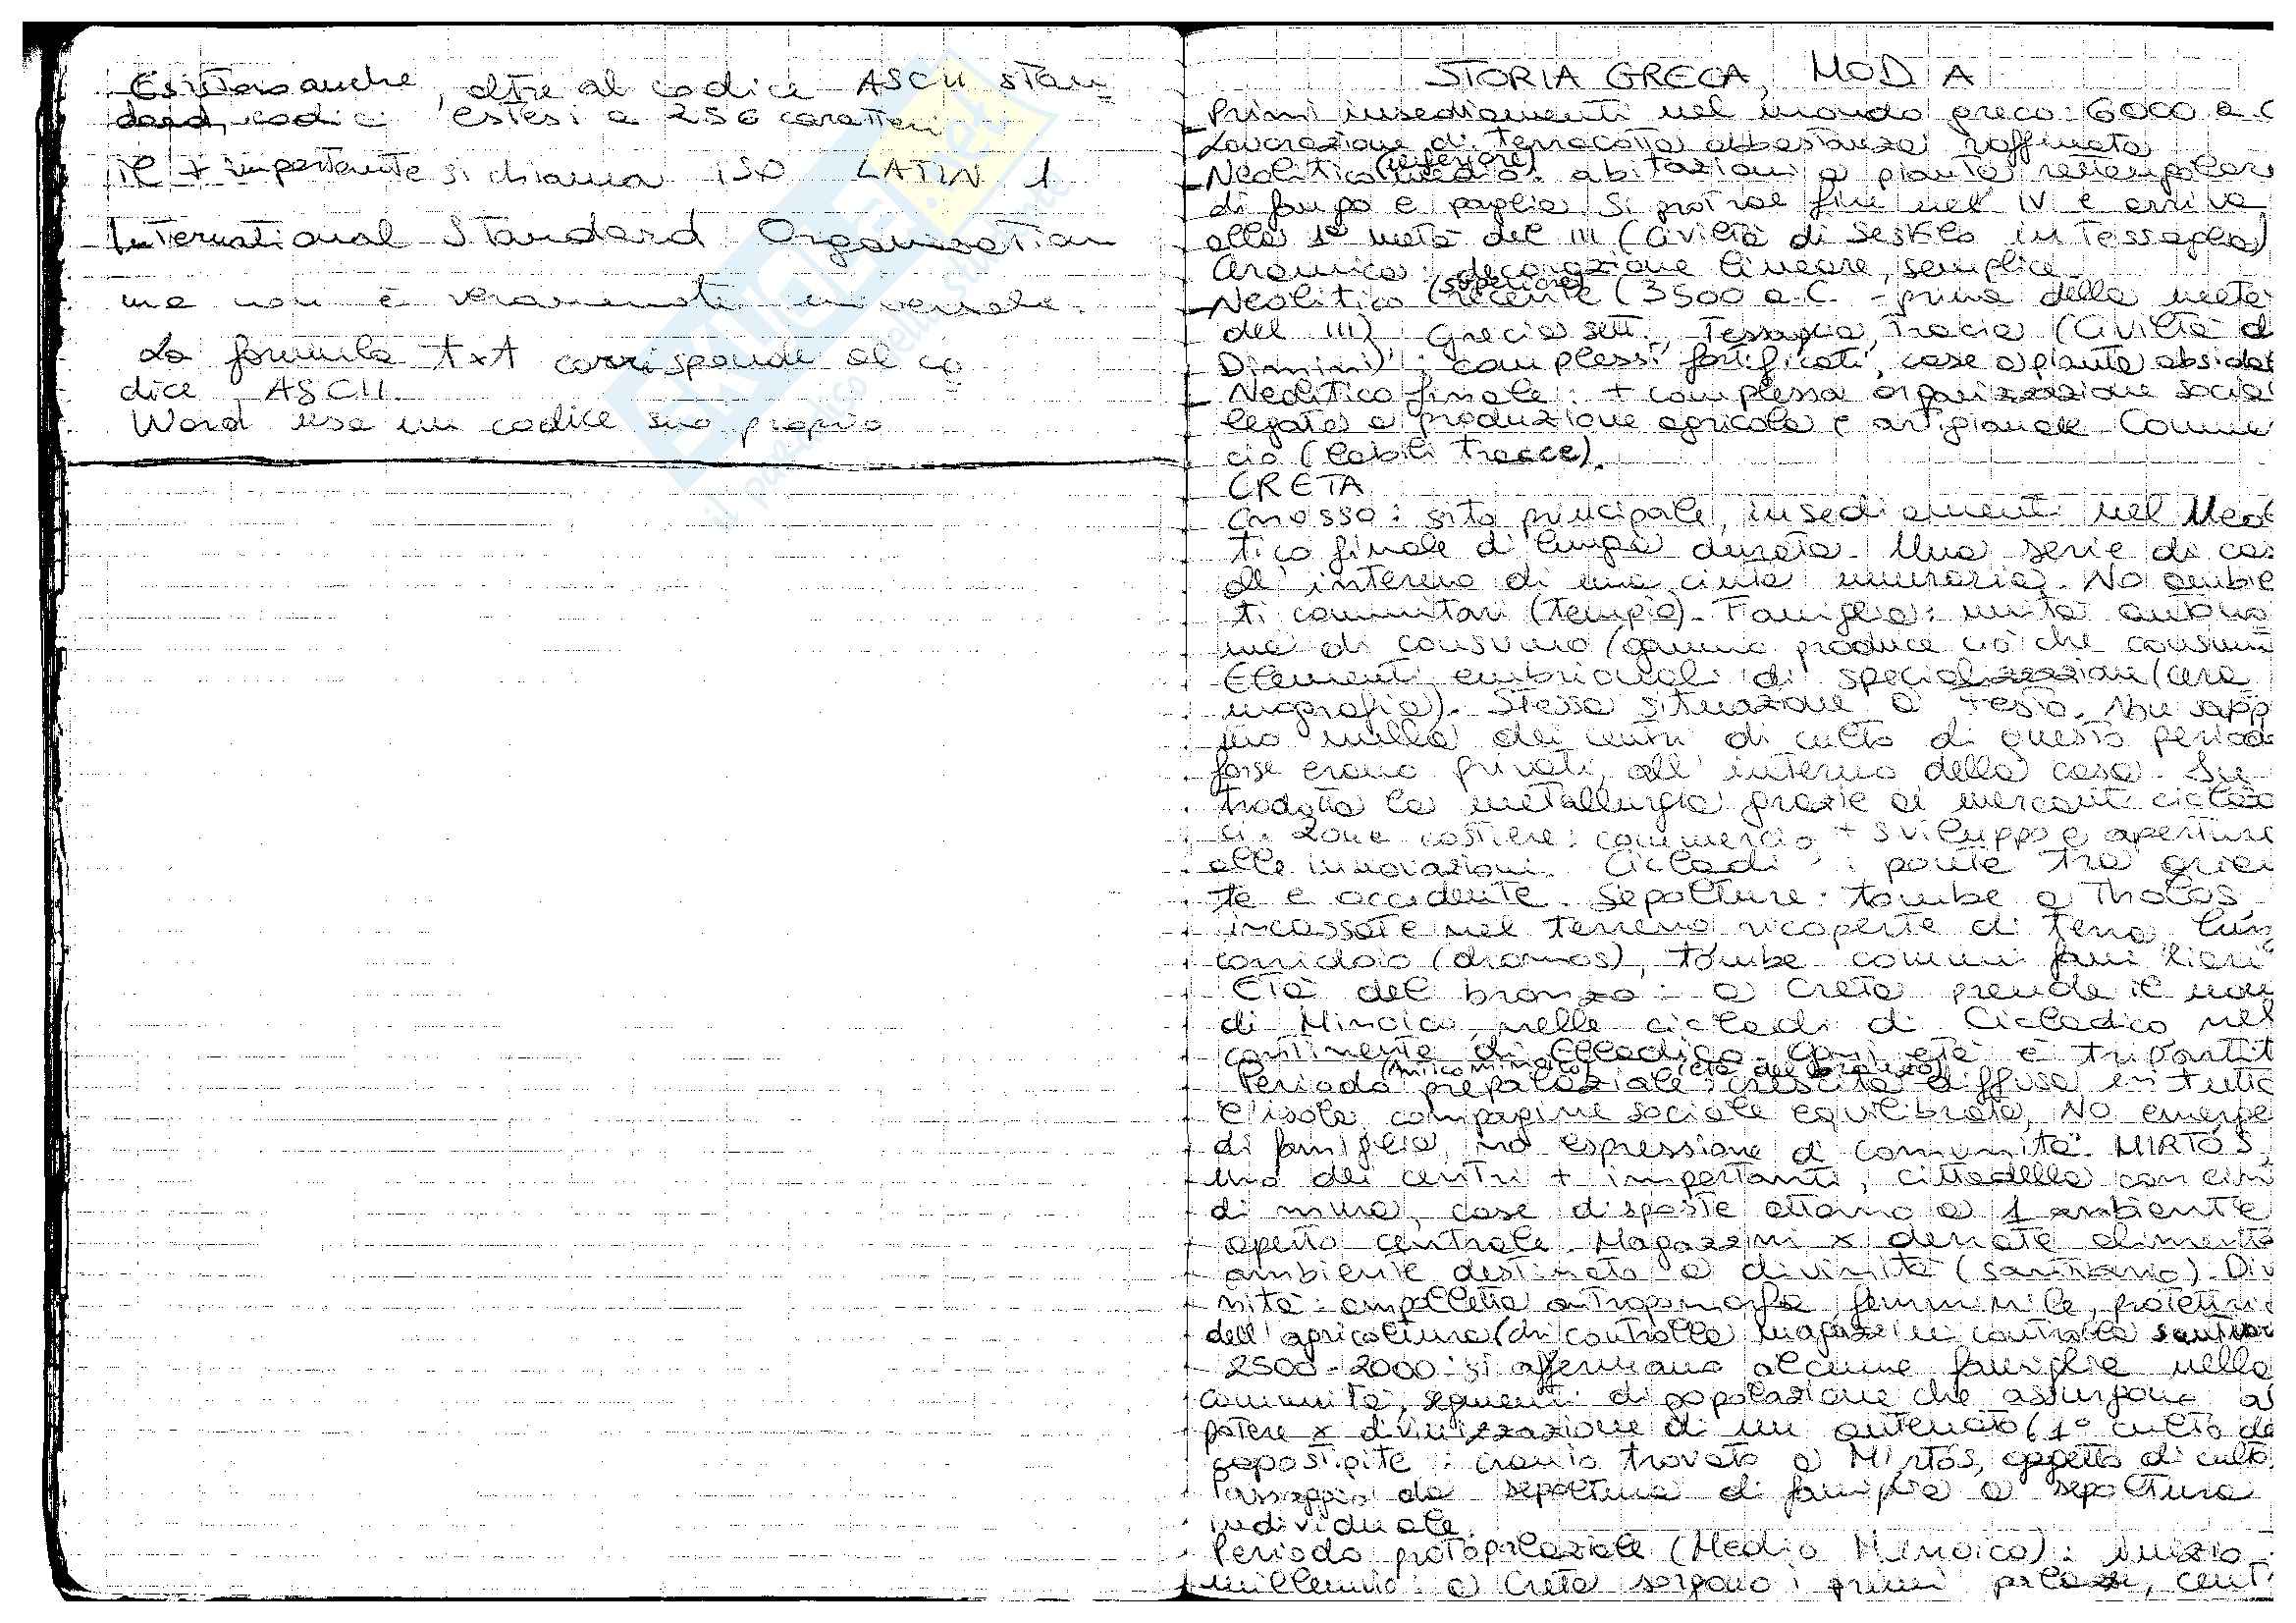 Esistono anche, oltre al codice ASCII stan=
dard, codici estesi a 256 caratteri
il + importante si chiama ISO LATIN 1
International Standard Organisation
ma non è veramente universale.
La formula txt corrisponde al co=
dice ASCII.
Word usa un codice suo proprio
STORIA GRECA, MOD A
- Primi insediamenti nel mondo greco: 6000 a.C
Lavorazione di terracotta abbastanza raffinata
- Neolitico medio (inferiore): abitazioni a pianta rettangolare
di fango e paglia. Si protrae fin nel IV e arriva
alla 1ª metà del III (Civiltà di Sesklo in Tessaglia)
Ceramica: decorazione lineare, semplice.
- Neolitico recente (superiore) (3500 a.C. - prima della metà
del III) Grecia sett., Tessaglia, Tracia (Civiltà di
Dimini): complessi fortificati, case a pianta absidat
- Neolitico finale: + complessa organizzazione social
legata a produzione agricola e artigianale. Comme
cio (labili tracce).
CRETA
Cnosso: sito principale, insediamenti nel Neol
tico finale di lunga durata. Una serie di cas
all'interno di una cinta muraria. No ambie
ti comunitari (tempio). Famiglia: unità autono
ma di consumo (ognuno produce ciò che consum
Elementi embrionali di specializzazione (cera
mografia). Stessa situazione a Festo. Non sapp
mo nulla dei centri di culto di questo periodo
forse erano privati, all'interno della casa. In=
trodotta la metallurgia grazie ai mercanti cicladi
ci. Zone costiere: commercio, + sviluppo e apertura
alle innovazioni. Cicladi: ponte tra orien
te e occidente. Sepolture: tombe a Tholos,
incassate nel terreno ricoperte di terra, lun
corridoio (dromos), tombe comuni familiari
Età del bronzo: a Creta prende il nom
di Minoico, nelle cicladi di Cicladico, nel
continente di Elladico. Ogni età è tripartit
Periodo prepalaziale (Antico minoico) (età del bronzo): crescita diffusa in tutta
l'isola, compagine sociale equilibrata, No emerge
di famiglia, no espressione di comunità. MIRTOS,
uno dei centri + importanti, cittadella con cin
di mura, case disposte attorno a 1 ambiente
aperto centrale. Magazzini x derrate alimenta
ambiente destinato a divinità (santuario). Div
nità: ampolletta antropomorfa femminile, protettric
dell'agricoltura (chi controlla magazzini controlla santuar
2500-2000: si affermano alcune famiglie nella
comunità, segmenti di popolazione che assurgono al
potere x divinizzazione di un antenato (1° culto de
capostipite: cranio trovato a Mirtós, oggetto di culto.
Passaggio da sepoltura di famiglia a sepoltura
individuale.
Periodo protopalaziale (Medio Minoico): inizio
millennio: a Creta sorgono i primi palazzi, cent